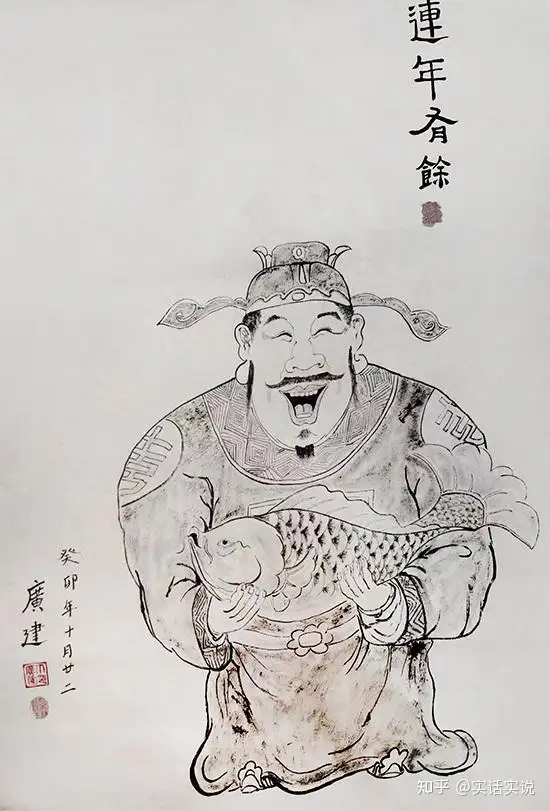 連年有餘
癸卯年十月廿二
廣建
知乎 @实话实说